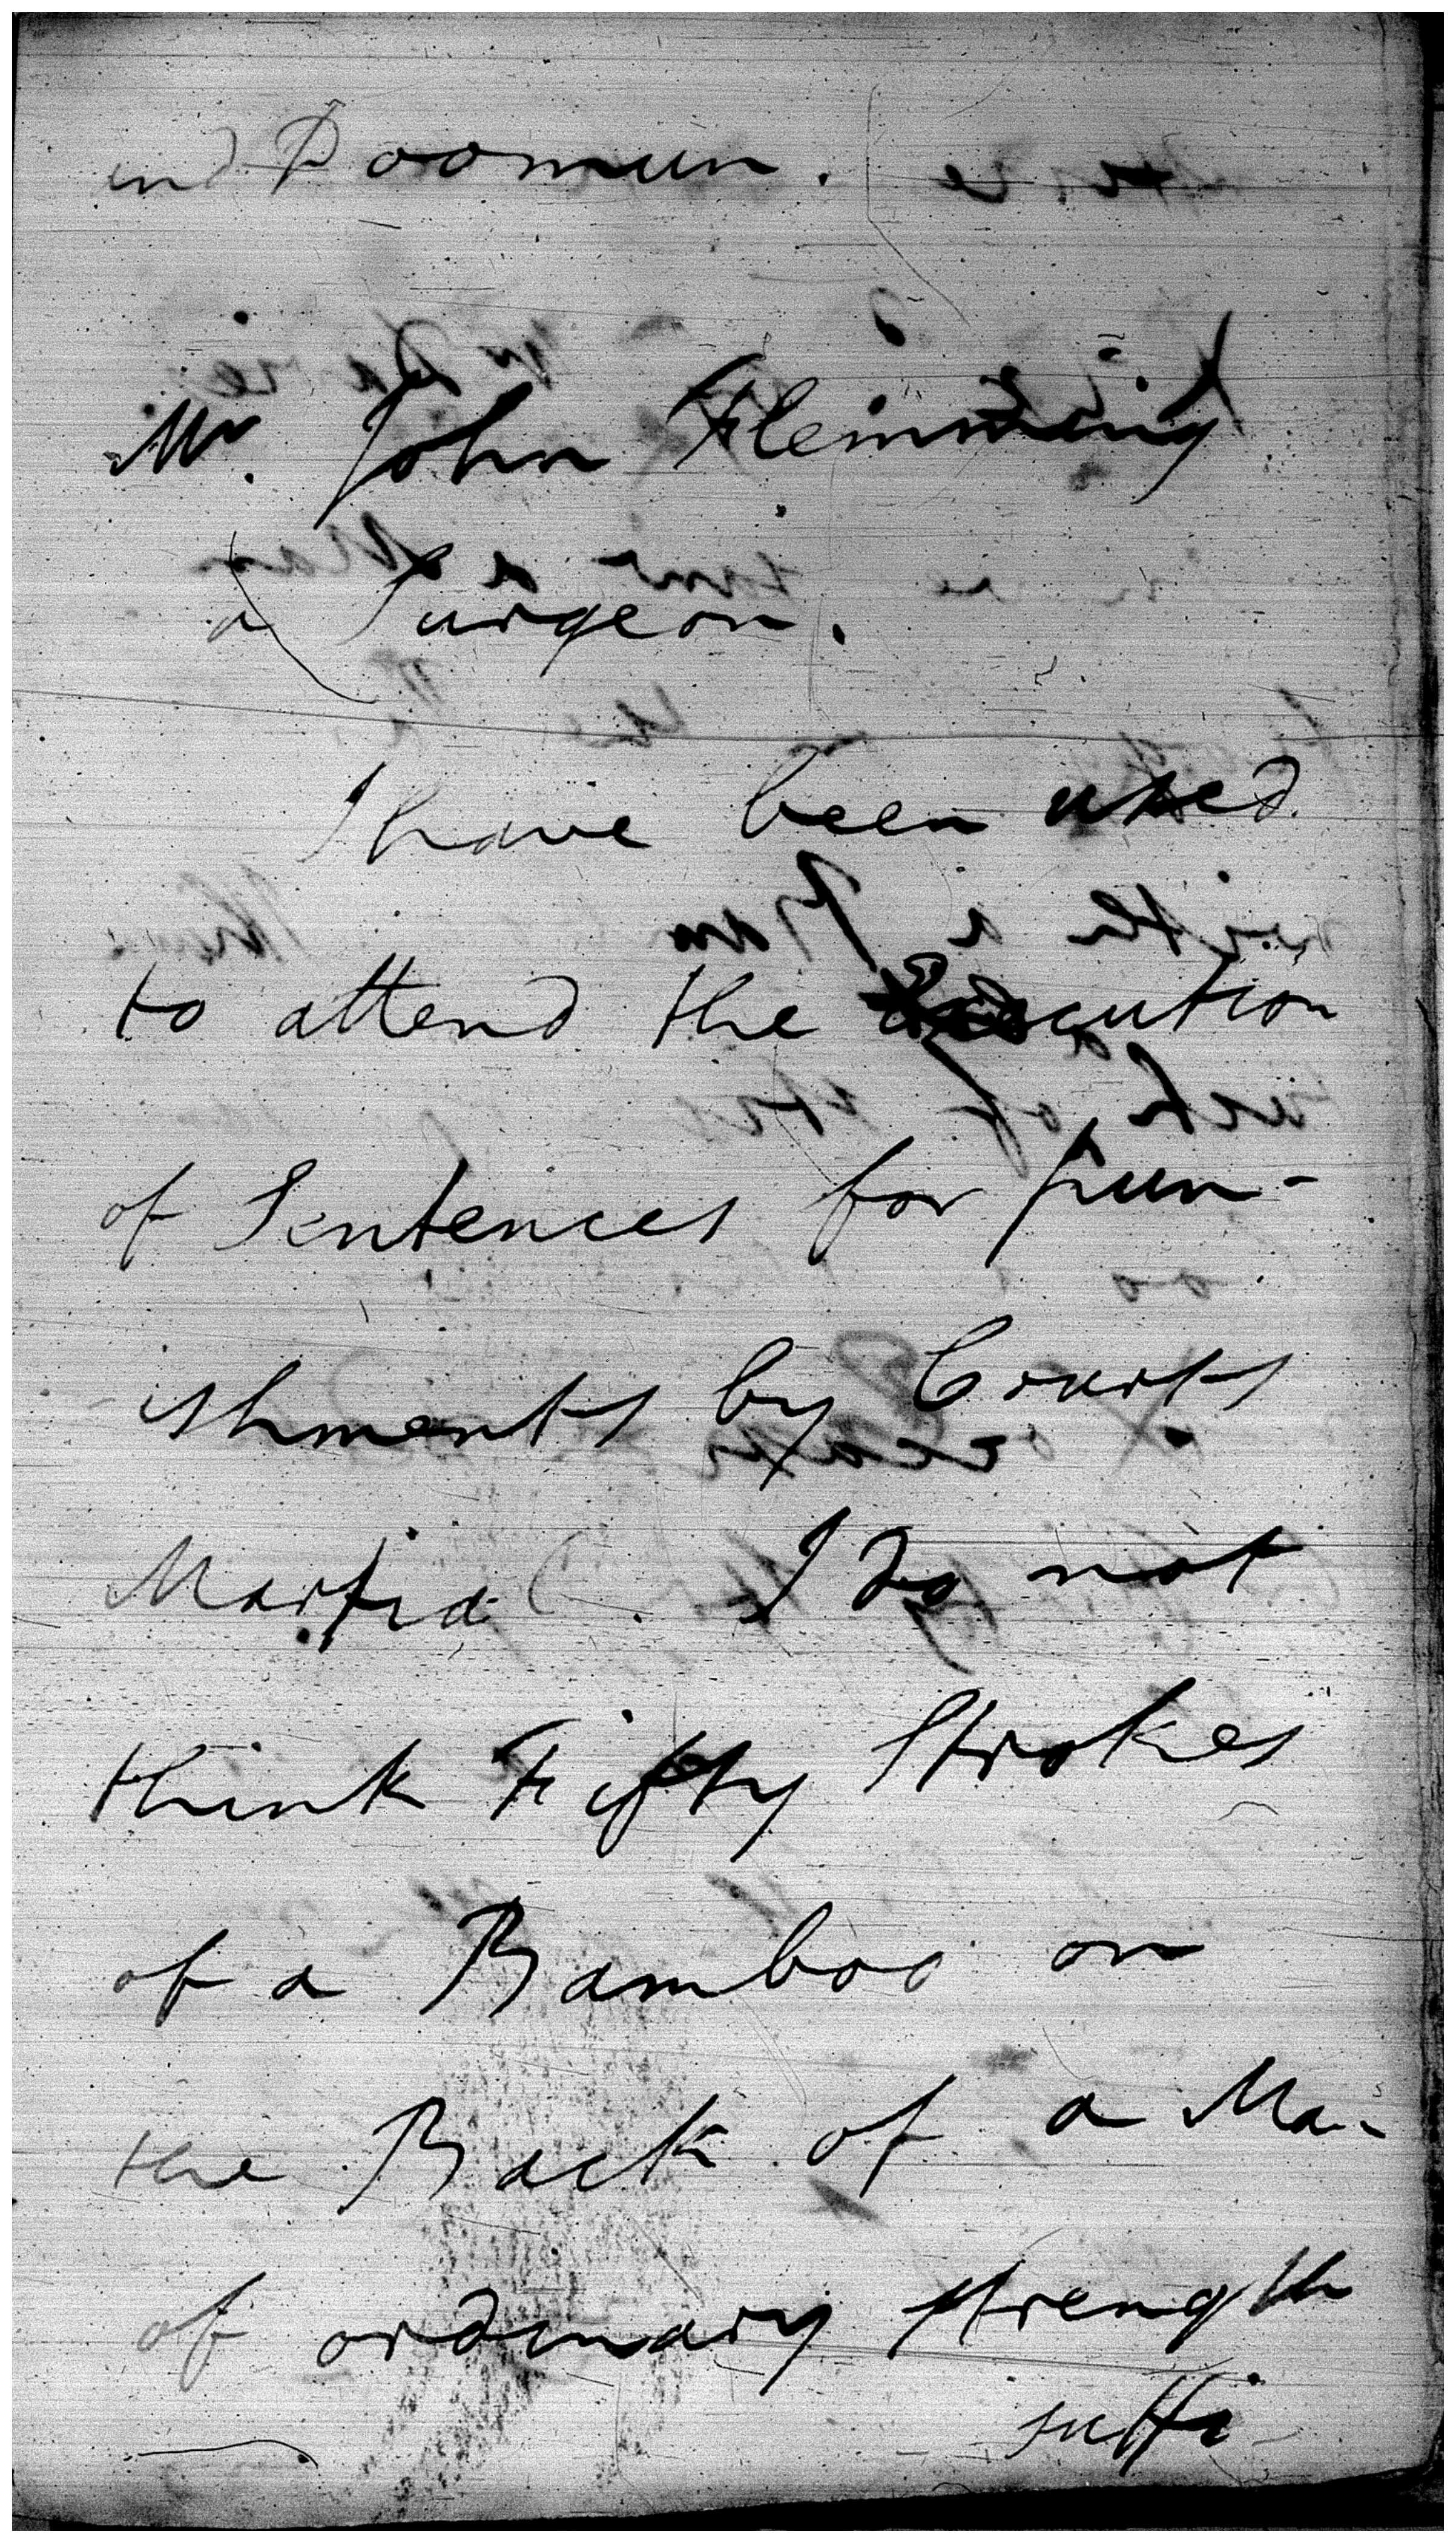 and Poomun.
Mr. John Flemming
a Surgeon.
I have been used
to attend the Execution
of Sentences for pun-
ishments by Courts
Martial. I do not
think Fifty Strokes
of a Bamboo on
the Back of a Man
of ordinary strength
suffi-